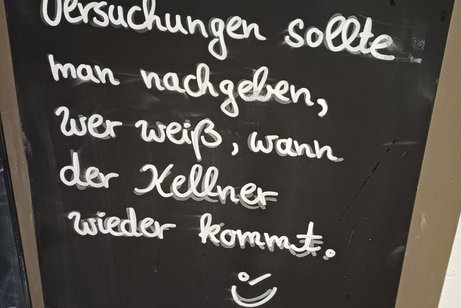 Versuchungen sollte
man nachgeben,
wer weiß, wann
der Kellner
wieder kommt.